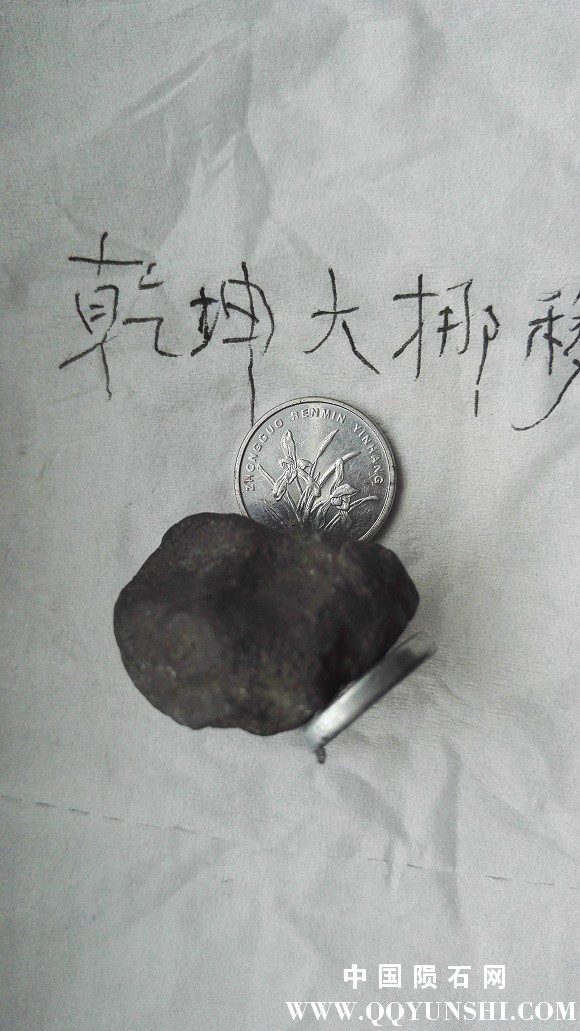 乾坤大挪移
ZHONGGUO RENMIN YINHANG
中国陨石网
WWW.QQYUNSHI.COM